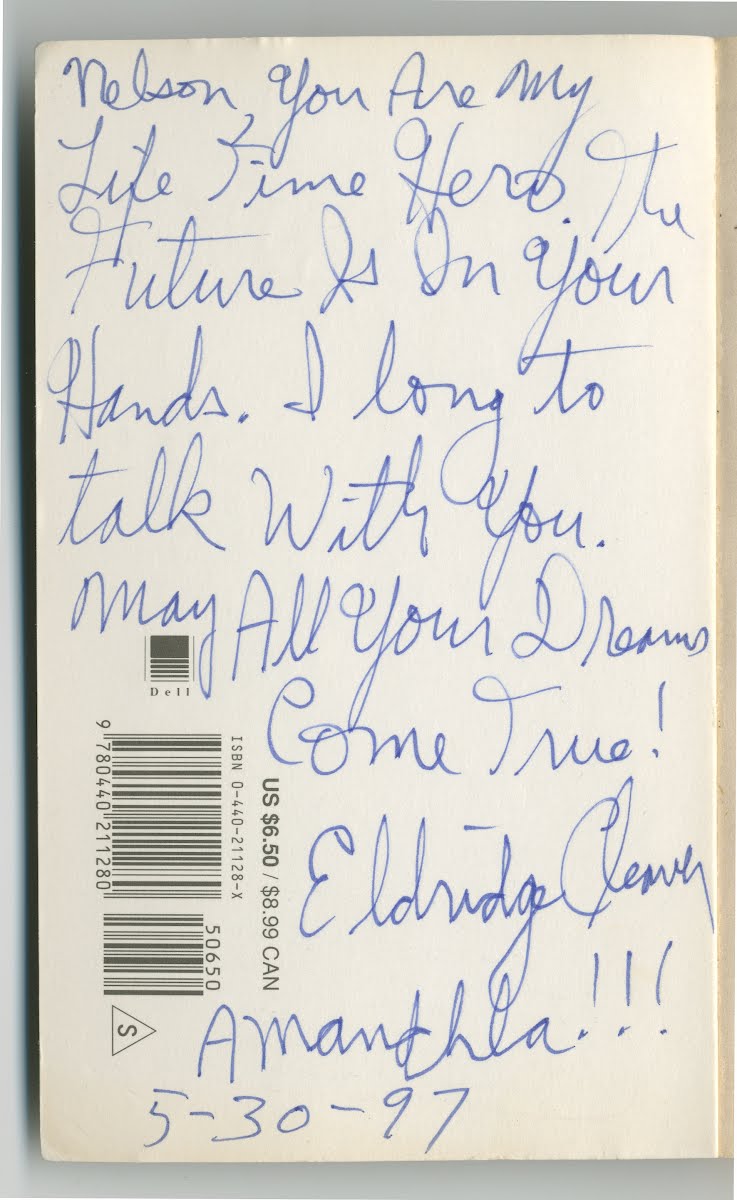 Nelson, You Are My
Life Time Hero. The
Future Is In Your
Hands. I long to
talk With You.
May All Your Dreams
Come True!
Eldridge Cleaver
Amandhla!!!
5-30-97
Dell
ISBN 0-440-21128-X
9 780440 211280
50650
US $6.50 / $8.99 CAN
S